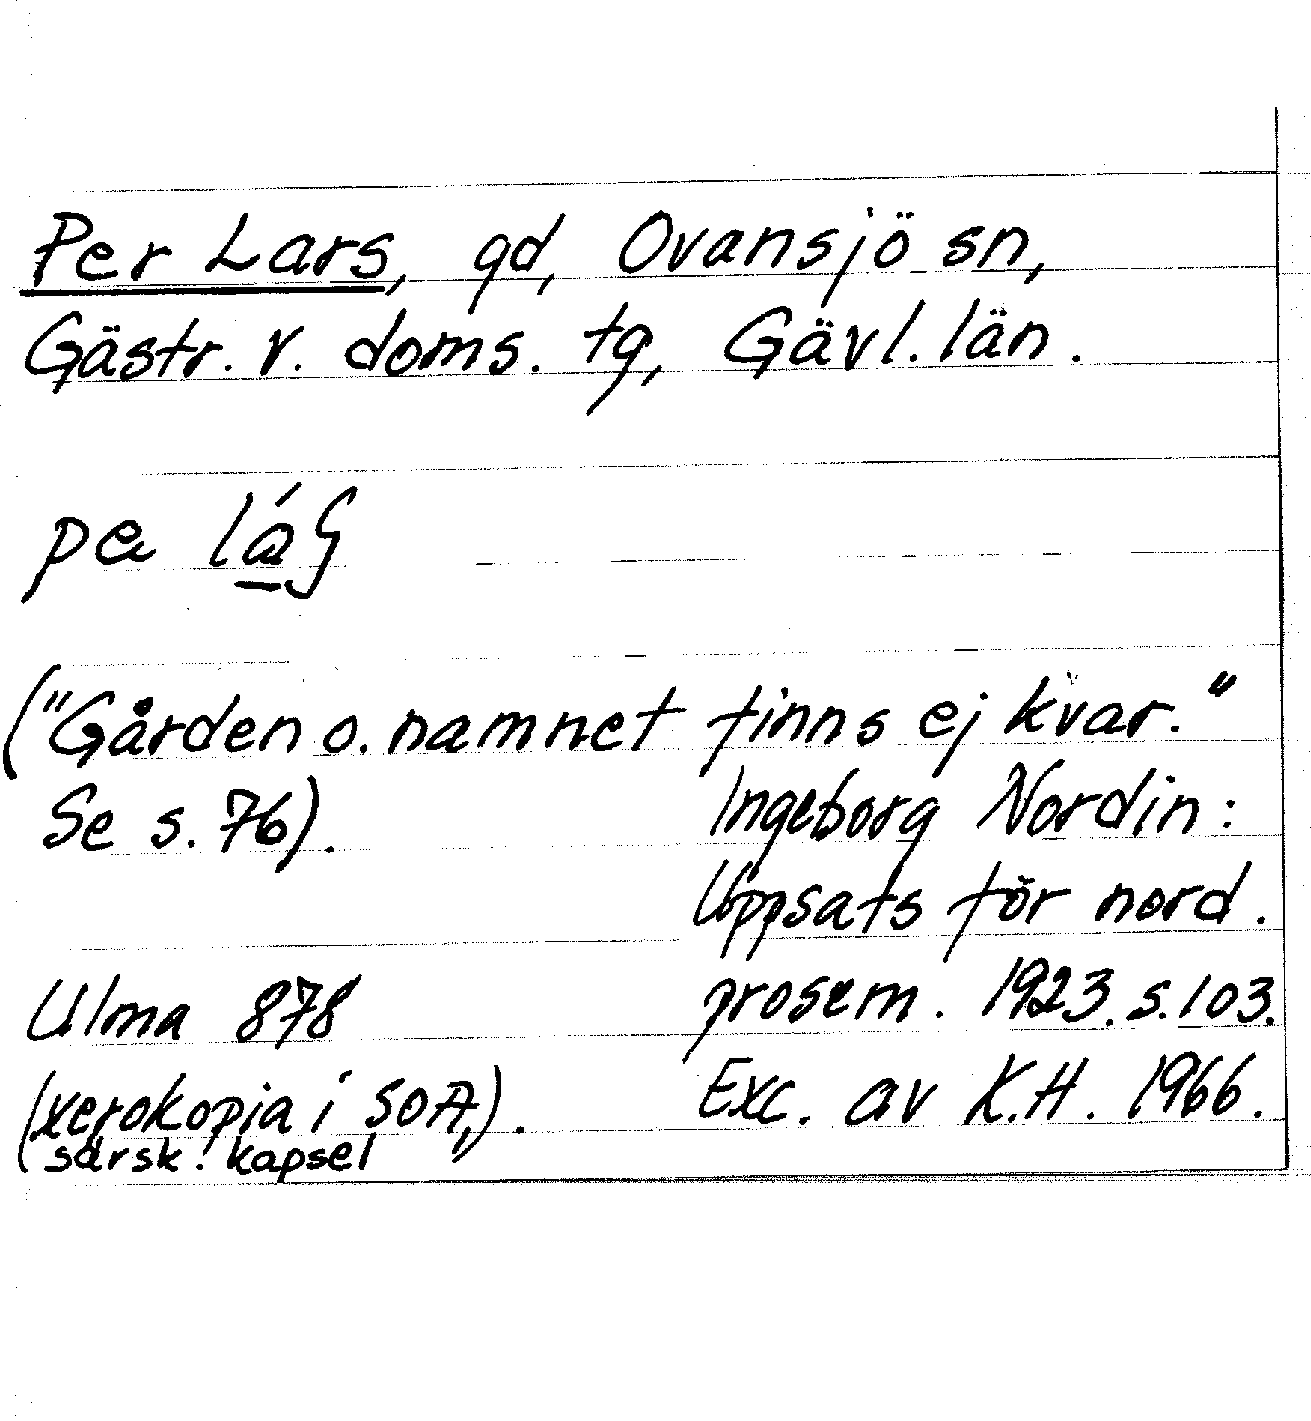 Per Lars, gd, Ovansjö sn,
Gästr. v. doms. tg, Gävl. län.
("Gården o. namnet finns ej kvar."
Se s. 76).
Ingeborg Nordin:
Uppsats för nord.
prosem. 1923. s. 103.
Exc. av K.H. 1966.
Ulma 878
(xerokopia i SOA,).
särsk. kapsel